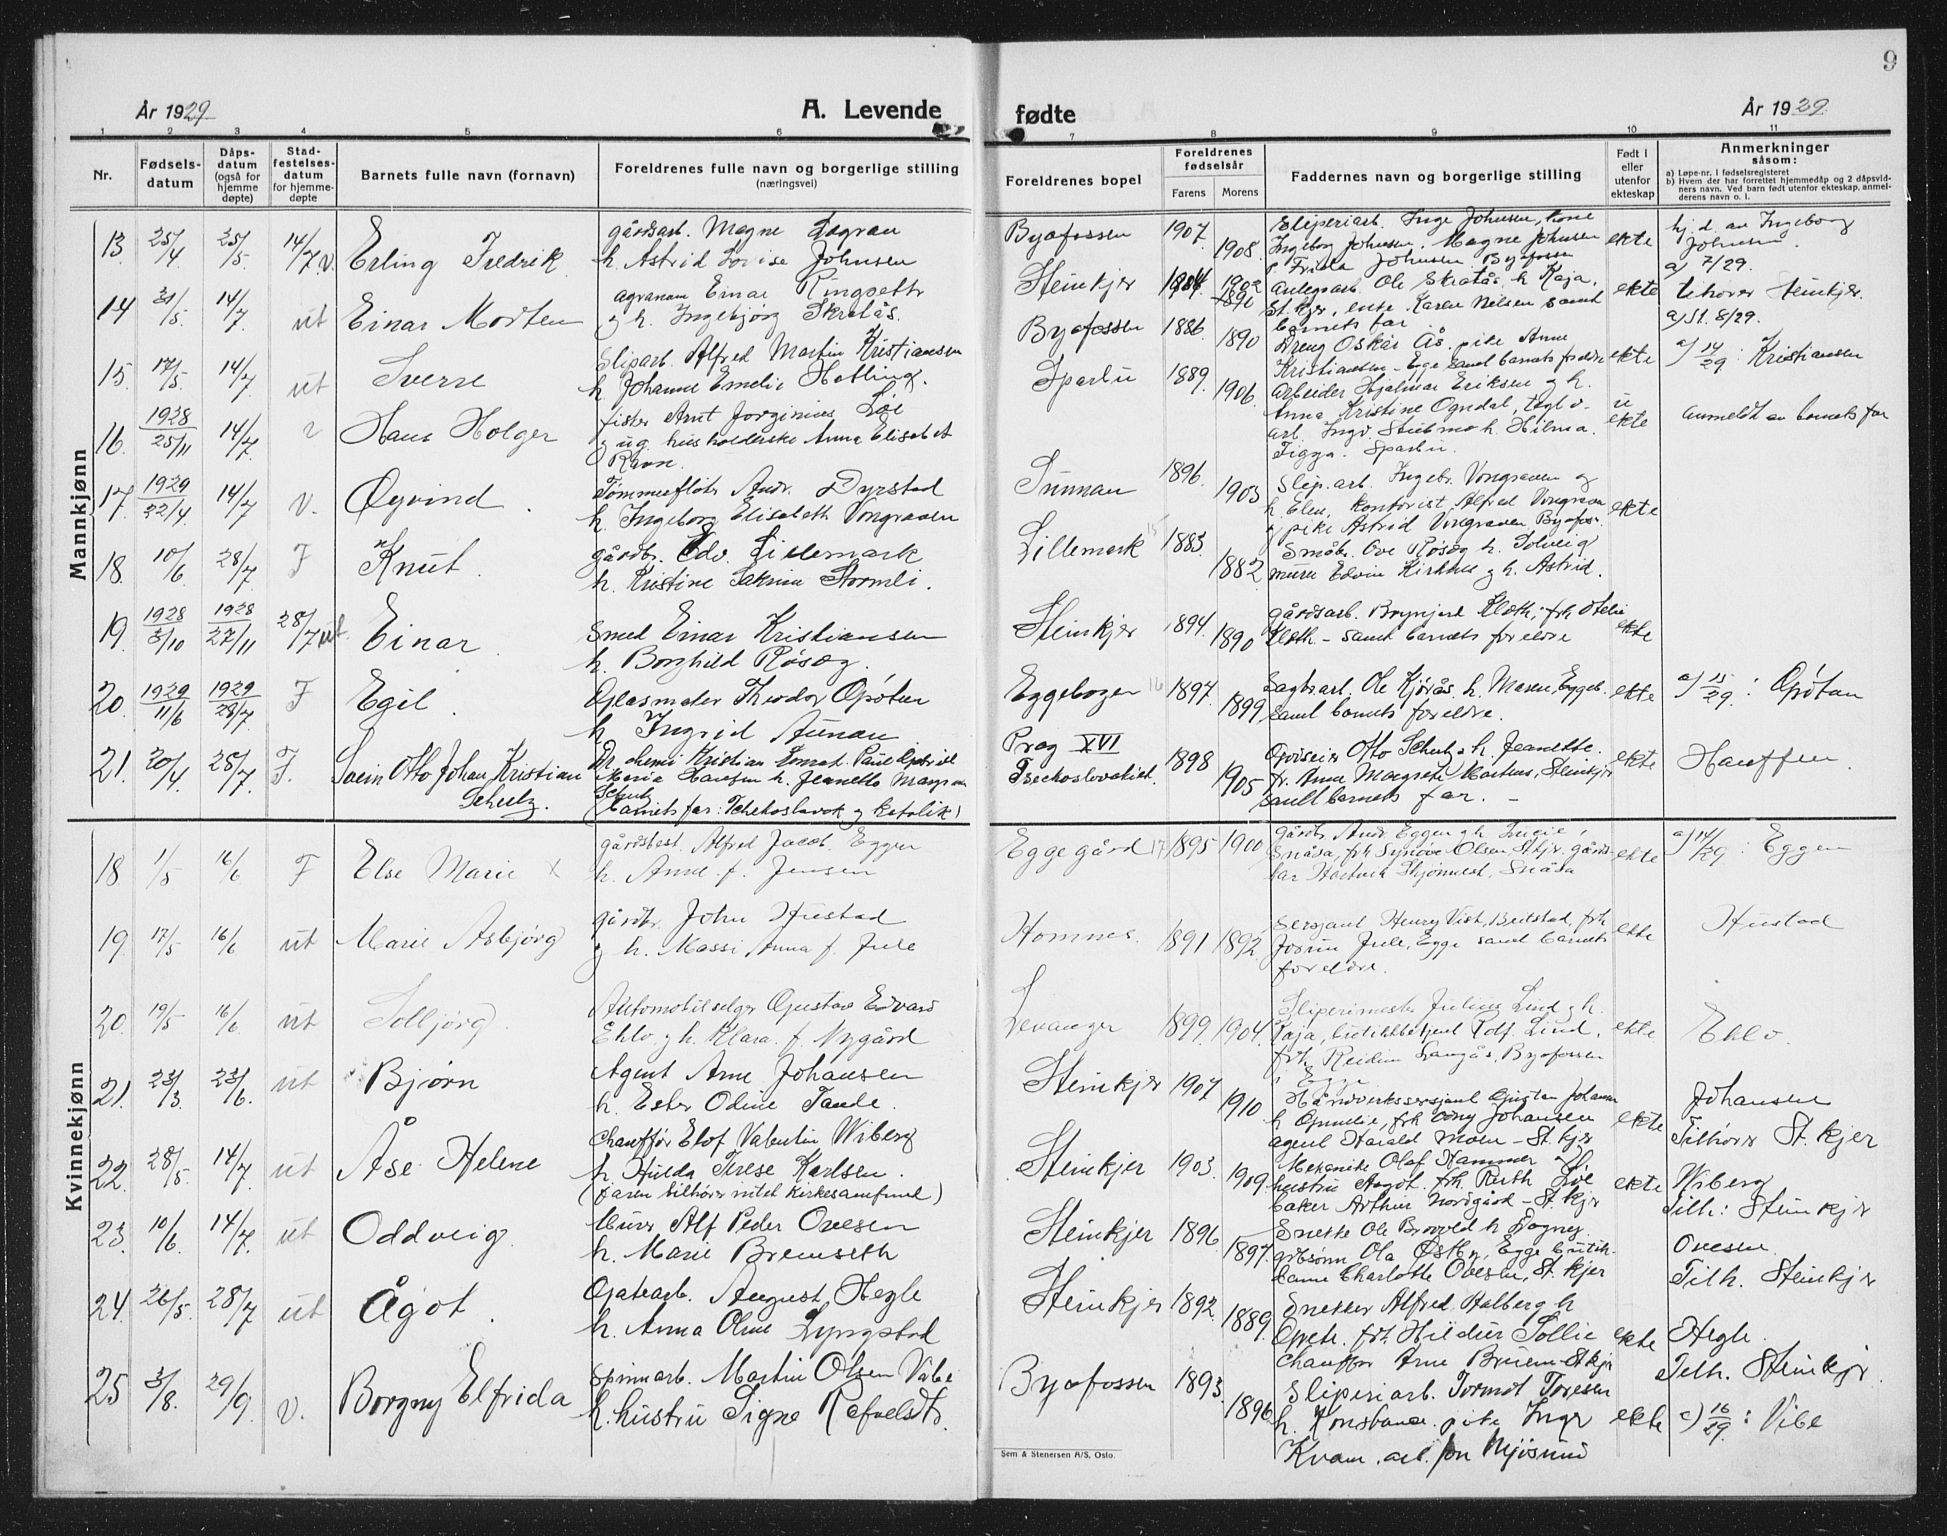 År 1929
A. Levende
1 2 3 4 5 6
Nr.
Fødsels-
datum
Dåps-
datum
(også for
hjemme
døpte)
Stad-
festelses-
datum
for hjemme-
døpte
Barnets fulle navn (fornavn)
Foreldrenes fulle navn og borgerlige stilling
(næringsvei)
Mannkjønn
13 25/4 25/5 14/7 v. Erling Fredrik
gårdsarb. Magne
h. Astrid Lovise Johnsen
14 14/7 ut Einar Morten
agronom Einar Ringseth
g h. Ingebjørg Skratås.
15. 17/5 14/7 ut Sverre
Sliparb. Alfred Martin Kristiansen
h. Johanne Emelie
16. 1928 25/11 14/7 Hans Holger
fisker Arnt Jørginius Løe
g ug. husholderske Anna Elisabet
Ravn.
17. 1929 22/4 14/7 v. Øyvind
Tømmerfløter Andr. Dyrstad
h. Ingeborg Elisabeth Vongraven
18. 10/6 28/7 F Knut.
gårdbr. Edv. Lillemark
h. Kristine Stormli.
19. 1928 3/10 1928 27/11 28/7 ut Einar
Smed Einar Kristiansen
h. Borghild Røsæg.
20. 1929 11/6 1929 28/7 F Egil.
Glasmester Theodor
h Ingrid Aunan
21. 20/4 28/7 F. Otto Johan Kristian
Schulz.
Dr. chemi Kristian
Maria h. Jeanette
Schulz
(Barnets far: Tchekoslovak g katolik)
Kvinnekjønn
18 1/5 16/6 F Else Marie x
gårdbest. Alfred Jacob Eggen
h. Anne f. Jensen
19. 17/5 16/6 ut Marie Asbjørg
gårdbr. John Hustad
g h. Massi Anna f. Jule
20. 19/5 16/6 ut Solbjørg.
Automobilselger Gustav Edvard
Ehlo g h. Klara f. Nygård
21. 23/3 23/6. ut Bjørn
Agent Arne Johansen
h. Ester Odine Taule.
22. 28/5. 14/7. ut Åse Helene
Chauffør Elof Valentin Wiberg
h. Hilda Terese Karlsen.
(Faren tilhører intet kirkesamfund)
23. 10/6. 14/7. ut Oddveig.
Murer Alf Peder Ovesen
h. Marie Bremseth
24. 26/5. 28/7 ut Ågot.
Gatearb. August Hegle
h. Anna Oline Lyngstad
25 3/8. 29/9. v. Borgny Elfrida
Spinnarb. Martin Olsen Vibe
h. hustru Signe
9
fødte
År 1929.
7 8 9 10 11
Foreldrenes bopel
Foreldrenes
fødselsår
Farens Morens
Faddernes navn og borgerlige stilling
Født i
eller
utenfor
ekteskap
Anmerkninger
såsom:
a) Løpe-nr. i fødselsregisteret
b) Hvem der har forrettet hjemmedåp og 2 dåpsvid-
ners navn. Ved barn født utenfor ekteskap, anmel-
derens navn o. l.
Byafossen 1907. 1908.
Sliperiarb. Inge Johnsen, kone
Ingeborg Johnsen, Magne Johnsen
p. Frida Johnsen Byafossen
ekte
hj.d. av Ingeborg
Johnsen.
a) 7/29.
Steinkjer 1902
anlegsarb. Ole Skratås h. Kaja,
St.kjer, enke Karen Nilsen samt
barnets far
ekte
tilhører Steinkjer.
a) St. 8/29.
Byafossen 1886 1890
Dreng Oskar Ås. pike Anne
Kristiansen - Egge samt barnets foreldre
ekte
a) 14/29: Kristiansen
Sparbu 1889. 1906.
arbeider Hjalmar Eriksen g h.
Anna Kristine Ogndal,
arb. Ingv. Stubmo h. Hilma.
Figga. Sparbu.
u
ekte
Anmeldt av barnets far
Sunnan 1896. 1903
Slip.arb. Ingebr. Vongraven og
h. Elen, kontorist Alfred Vongraven
g pike Astrid Vongraven Byafos.
ekte
Lillemark 15 1883. 1882
Småbr. Ove Røsæg h. Solveig
murer Edvin g h. Astrid.
Steinkjer 1894. 1890
gårdsarb. Brynjard Kloth, frk
Kloth - samt barnets foreldre
ekte
Eggebogen 16 1897. 1899
Sagbr.arb. Ole Kjørås. h. Maren, Eggeb.
samt barnets foreldre.
ekte
a) 15/29:
Prag XVI
Tsechoslovakiet.
1898 1905
Otto Schulz h. Jeanette.
fr. Anne Margrete Martens, Steinkjer
samt barnets far. -
ekte
Hauffen
Egge gård 17 1895 1900
gårdbr. Andr. Eggen g h.
Snåsa, frk Synøve Olsen, St.kjr. gårds-
Snåsa
ekte
a) 14/29: Eggen
Homnes. 1891 1892.
Sersjant Henry Vist, Beitstad, frk
Jule, Egge samt barnets
foreldre.
ekte
Hustad
Levanger 1899. 1904.
Sliperimester Julius Lind g h.
Kaja, Rolf Lind,
frk Reidun Langås, Byafossen
ekte
Ehlo.
Steinkjer 1907 1910
Håndverkssersjant Johansen
h frk Johansen
agent Harald Moen - St.kjr
ekte
Johansen
Tilhører St.kjer
Steinkjer 1903. 1909.
Mekanike Olaf Hammer g
hustru Aagot. frk Ruth Løe
baker Arthur Nordgård - St.kjr
ekte
Wiberg
Tilh: Steinkjer
Steinkjer 1896 1897.
Snekker Ole h Dagny.
Ola Østby, Egge
Charlotte Ovesen, St.kjer
Ovesen.
Tilh. Steinkjer
Steinkjer 1892. 1889.
Snekker Alfred Halberg h
frk Hildur Sollie
Chauffør Arne Bruem - St.kjr
ekte
Hegle.
Tilh. Steinkjer.
Byafossen 1893. 1896
Sliperiarb. Tormod Toresen
h. Konstance. pike Inger
Kvam. arb. Jon Mjøsund
ekte
a) 16/29: Vibe
Sem & Stenersen A/S, Oslo.